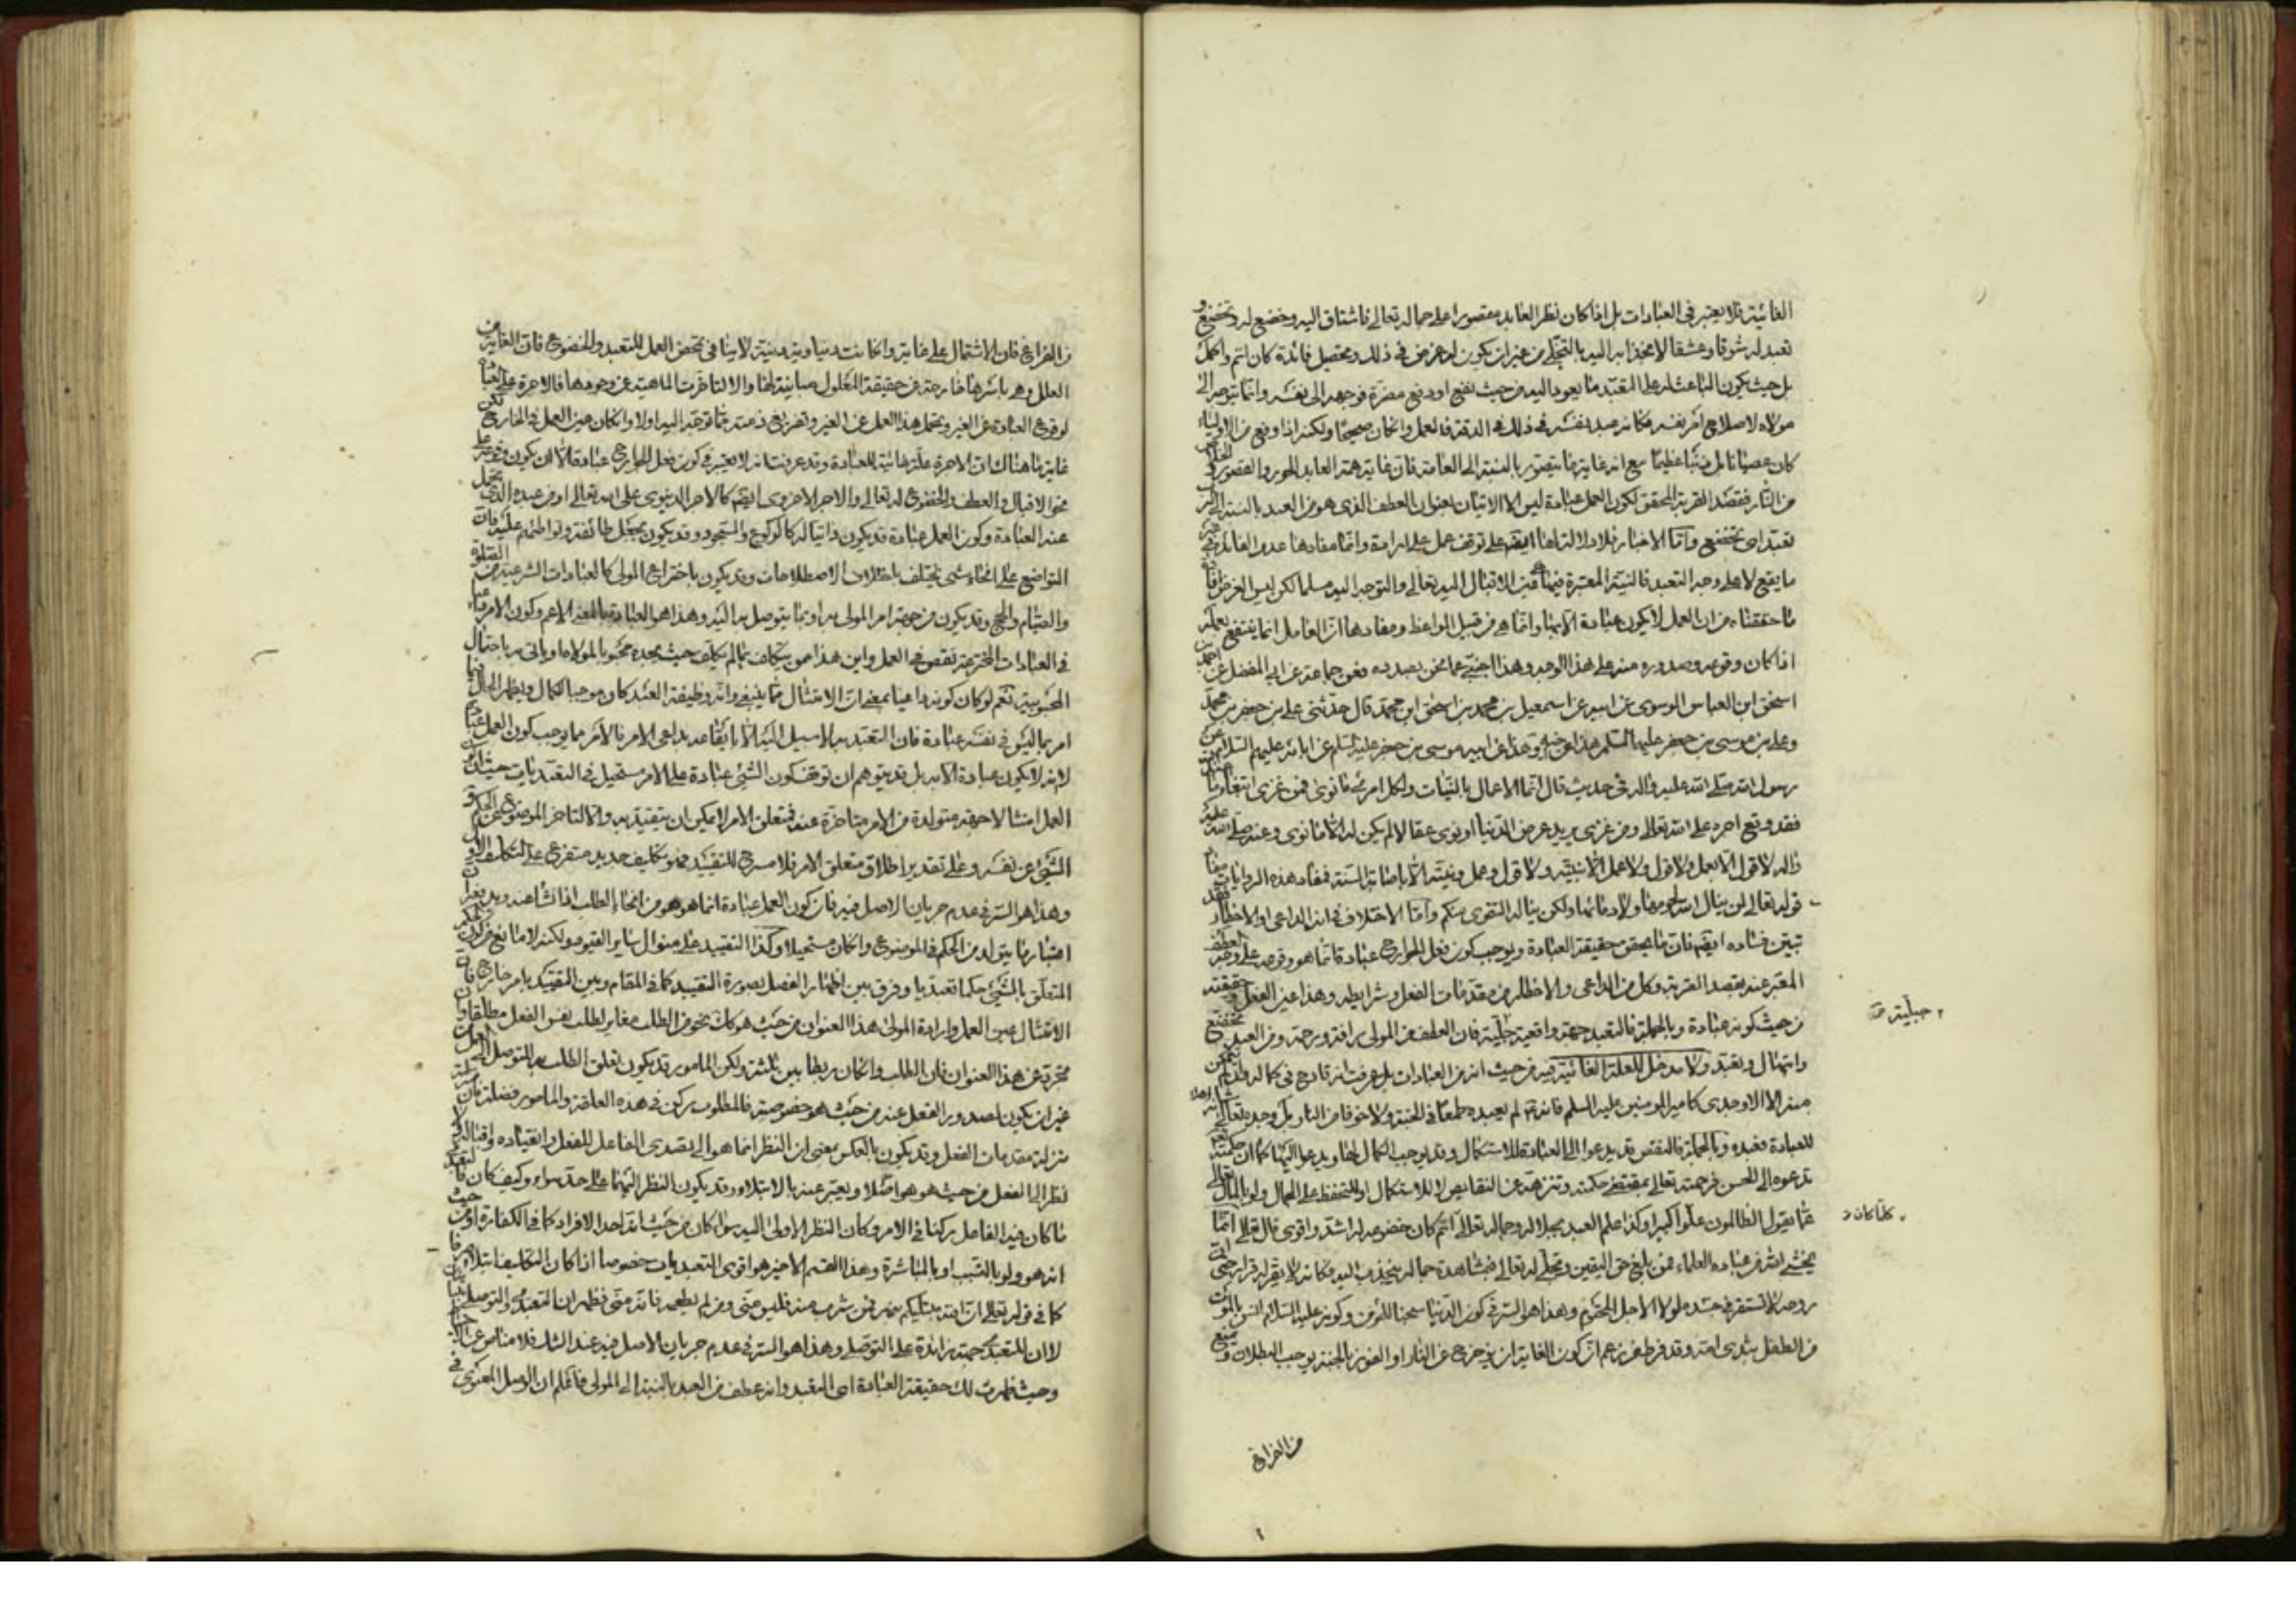 الغائية فلا يعتبر في العبادات بل اذا كان نظر العابد مقصورا على جماله تعالى فاشتاق اليه وخضع له وتخضع و
تعبد له شوقا وعشقا لانجذابه اليه بالتجلي من غير ان يكون له غرض في ذلك وتحصيل فائدة كان اتم واكمل
بل حيث يكون الباعث له على التعبد ما يعود اليه من حيث نفع او دفع مضرة فوجهه الى نفسه وانما يتوجه الى
مولاه لاصلاح امر نفسه فكانه عبد نفسه في ذلك في الدقة فالعمل وان كان صحيحا ولكنه اذا وقع من الاولياء
كان عصيانا بل ذنبا عظيما مع انه غاية ما يتصور بالنسبة الى العامة فان غاية همة العابد الحور والقصور و
من النار فقصد القربة المحقق لكون العمل عبادة ليس الا الاتيان بعنوان العطف الذي هو من العبد بالنسبة الى
تعبد اي تخضع واما الاخبار فلا دلالة لها ايضا على توقف عمل على ارادة وانما مفادها عدم الفائدة
ما يقع لا على وجه التعبد فالنية المعتبرة فيها عين الاقبال اليه تعالى والتوجه اليه مسلما لكن ليس الغرض
ما حققناه من ان العمل لا يكون عبادة الا بها وانما هي من قبيل المواعظ ومفادها ان العامل انما ينتفع بعمله
اذا كان وقوعه وصدوره منه على هذا الوجه وهذا اجنبي عما نحن بصدده فعن جماعة عن ابي المفضل عن احمد بن
اسحق ابن العباس الموسوي عن ابيه عن اسمعيل بن محمد بن اسحق ابن محمد قال حدثني علي بن جعفر بن محمد
وعلي بن موسى بن جعفر عليهما السلم هذا عن اخيه وهذا عن ابيه موسى بن جعفر عليه السلم عن ابائه عليهم السلم عن
رسول الله صلى الله عليه واله في حديث قال انما الاعمال بالنيات ولكل امرئ ما نوى فمن غزى ابتغاء ما عند الله
فقد وقع اجره على الله تعالى ومن غزى يريد عرض الدنيا او نوى عقالا لم يكن له الا ما نوى وعنه صلى الله عليه
واله لا قول الا بعمل ولا قول ولا عمل الا بنية ولا قول وعمل ونية الا باصابة السنة فمفاد هذه الروايات مفاد
قوله تعالى لن ينال الله لحومها ولا دماؤها ولكن يناله التقوى منكم واما الاختلاف في انه الداعي او الاخطار فقد
تبين فساده ايضا فان ما يحقق حقيقة العبادة ويوجب كون فعل الجوارح عبادة فانما هو وقوعه على وجه العطف
المعبر عنه بقصد القربة وكل من الداعي والاخطار من مقدمات الفعل وشرايطه وهذا عين الفعل وحقيقته
من حيث كونه عبادة وبالجملة فالتعبد جهة واقعية جبلية فان العطف من المولى رافة ورحمة ومن العبد تخضع
وابتهال وتعبد ولا مدخل للعلة الغائية فيه من حيث انه من العبادات بل عرفت انه قادح في كماله
منه الا الاوحدي كامير المؤمنين عليه السلم فانه لم يعبده طمعا في الجنة ولا خوفا من النار بل وجده تعالى اهلا
للعبادة فعبده وبالجملة فالنقص قد يدعو الى العبادة للاستكمال وقد يوجب الكمال لها ويدعو اليها كما ان حكمته
تدعوه الى الحسن فرحمته تعالى بمقتضى حكمته وتنزهه عن النقايص لا للاستكمال او للتحفظ على الجمال ولو بالمال تعالى
عما يقول الظالمون علوا كبيرا وكذا علم العبد بجلاله وجماله تعالى اتم كان خضوعه له اشد واقوى قال تعالى انما
يخشى الله من عباده العلماء فمن بلغ حق اليقين وتجلى له تعالى فبمشاهدة جماله ينجذب اليه فكانه لا يقر له قرار حتى ان
روحه لا تستقر في جسده لولا الاجل المحتوم وهذا هو السر في كون الدنيا سجنا للمؤمن وكونه عليه السلام انس بالموت
من الطفل بثدي امه وقد فرط من زعم ان كون الغاية ان يزحزح عن النار او الفوز بالجنة يوجب البطلان
من الفراغ
جبلية
كلما كان
من الفراغ فان الاشتمال على غاية وان كانت دنياوية دنية لا ينافي تمحض العمل للتعبد والخضوع فان الغاية من
العلل وهي باسرها خارجة عن حقيقة المعلول مباينة لها والا لتاخرت الماهية عن وجودها فالاجرة علة
لوقوع العبادة عن الغير وتحمل هذا العمل عن الغير وتفريغ ذمته عما توجه اليه اولا وان كان عين العمل في الخارج لكن
غاية ما هناك ان الاجرة علة غائية للعبادة وقد عرفت انه لا يعتبر في كون فعل الجوارح عبادة الا ان يكون وقوعه على
نحو الاقبال والعطف والخضوع له تعالى والاجر الاخروي ايضا كالاجر الدنيوي على الله تعالى او من عبده الذي
عند العبادة وكون العمل عبادة قد يكون ذاتيا له كالركوع والسجود وقد يكون بجعل طائفة وتواطئهم عليه فان
التواضع على انحاء شتى يختلف باختلاف الاصطلاحات وقد يكون باختراع المولى كالعبادات الشرعية من الصلوة
والصيام والحج وقد يكون من جهة امر المولى به او بما يتوصل به اليه وهذا هو العبادة بالمعنى الاعم وكون الامر
في العبادات المخترعة نقص في العمل واين هذا ممن يتكلف بما لم يكلف حيث يجده محبوبا لمولاه او ياتي به باحتمال
المحبوبية نعم لو كان كونه داعيا بمعنى ان الامتثال مما ينبغي وانه وظيفة العبد كان موجبا لكمال ويظهر الحال فيما
امر بما ليس في نفسه عبادة فان التعبد به لا سبيل اليه الا بايقاعه بداعي الامر فالامر مما يوجب كون العمل
لانه لا يكون عبادة الا به بل قد يتوهم ان توقف كون الشئ عبادة على الامر مستحيل في التعبديات حيث ان
العمل امتثالا جهة متولدة من الامر متاخرة عنه فمتعلق الامر لا يمكن ان يتقيد به والا لتاخر الموضوع عن الحكم
الشئ عن نفسه وعلى تقدير اطلاق متعلق الامر فلا مسرح للتقييد فهو تكليف جديد متفرع على التكليف الاول
وهذا هو السر في عدم جريان الاصل فيه فان كون العمل عبادة انما هو هو من انحاء الطلب اذا نشا عنه
اعتبار ما يتولد من الحكم في الموضوع وان كان مستحيلا وكذا التقييد على منوال ساير القيود ولكنه لا مانع من كون
المتعلق بالشئ حكما تعبديا وفرق بين اظهار الفصل بصورة التقييد كما في المقام وبين التقييد بامر خارج فان
الامتثال عين العمل وارادة المولى هذا العنوان من حيث هو كك نحو من الطلب مغاير لطلب نفس الفعل مطلقا
مجردة عن هذا العنوان فان الطلب وان كان ربطا بين ثلثة ولكن المامور قد يكون تعلق الطلب به للتوصل الى
غير ان يكون لصدور الفعل عنه من حيث هو خصوصية فالمطلوب ركن في هذه العلقة والمامور فضلة
منزلة مقدمات الفعل وقد يكون بالعكس بمعنى ان النظر انما هو الى تصدي الفاعل للفعل وانقياده واقباله
نظر الى الفعل من حيث هو هو اصلا ويعبر عنه بالابتلاء وقد يكون النظر اليهما على حد سواء وكيف كان
ما كان فيه الفاعل ركنا في الامر وكان النظر الاولى اليه سواء كان من حيث انه احد الافراد كما في الكفارة او من حيث
انه هو ولو بالتسبب او بالمباشرة وهذا القسم الاخير هو اقوى التعبديات خصوصا اذا كان التكليف ابتلاء
كما في قوله تعالى ان الله مبتليكم بنهر فمن شرب منه فليس مني ومن لم يطعمه فانه مني فظهر ان التعبدي والتوصلي
لا ان للتعبدي جهة زائدة على التوصلي وهذا هو السر في عدم جريان الاصل فيه عند الشك فلا مناص عن
وحيث ظهرت لك حقيقة العبادة اي التعبد وانه عطف من العبد بالنسبة الى المولى فاعلم ان الوصل المعنوي في